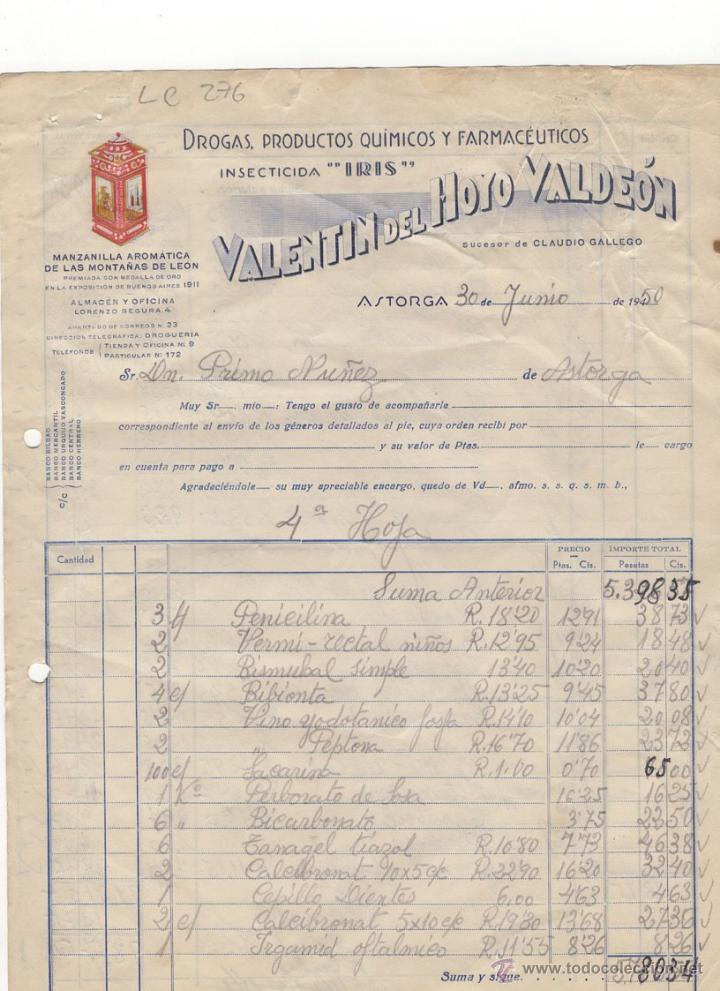 LC 276
DROGAS, PRODUCTOS QUÍMICOS Y FARMACÉUTICOS
INSECTICIDA ""IRIS""
VALENTIN DEL HOYO VALDEÓN
sucesor de CLAUDIO GALLEGO
MANZANILLA AROMÁTICA
DE LAS MONTAÑAS DE LEÓN
PREMIADA CON MEDALLA DE ORO
EN LA EXPOSICIÓN DE BUENOS AIRES 1911
ALMACÉN Y OFICINA
LORENZO SEGURA, 4
APARTADO DE CORREOS N. 23
DIRECCIÓN TELEGRÁFICA, DROGUERIA
TELÉFONOS { TIENDA Y OFICINA Nº 9
PARTICULAR Nº 172
ASTORGA 30 de Junio de 1950
Sr. Dn. Primo Nuñez de Astorga
Muy Sr. mío: Tengo el gusto de acompañarle
correspondiente al envío de los géneros detallados al pie, cuya orden recibí por
y su valor de Ptas. le cargo
en cuenta para pago a
Agradeciéndole su muy apreciable encargo, quedo de Vd., afmo. s. s. q. s. m. b.,
c/c
BANCO BILBAO
BANCO MERCANTIL
BANCO URQUIJO VASCONGADO
BANCO CENTRAL
BANCO HERRERO
4ª Hoja
Cantidad PRECIO IMPORTE TOTAL
Ptas. Cts. Pesetas Cts.
Suma Anterior 5.398 35
3 Penicilina R. 18'20 12'91 38 73
2 Vermi-rectal niños R. 12'95 9'24 18 48
2 Bismubal simple 13'40 10'20 20 40
4 c/ Bibionta R. 13'25 9'45 37 80
2 Vino yodotanico fosfa R. 14'10 10'04 20 08
2 " Peptona R. 16'70 11'86 23 72
100 c/ Sacarina R. 1.00 0'70 65 00
1 Kº Perborato de Sosa 16'25 16 25
6 " Bicarbonato 3'75 22 50
6 Tanagel tiazol R. 10'80 7'73 46 38
2 Calcibronat 10x5 c/c R. 22'90 16'20 32 40
1 Cepillo Dientes 6,00 4'63 4 63
2 c/ Calcibronat 5x10 c/c R. 19'30 13'68 27 36
1 Irgamid oftalmico R. 11'55 8'26 8 26
Suma y sigue. 5,780 34
www.todocoleccion.net